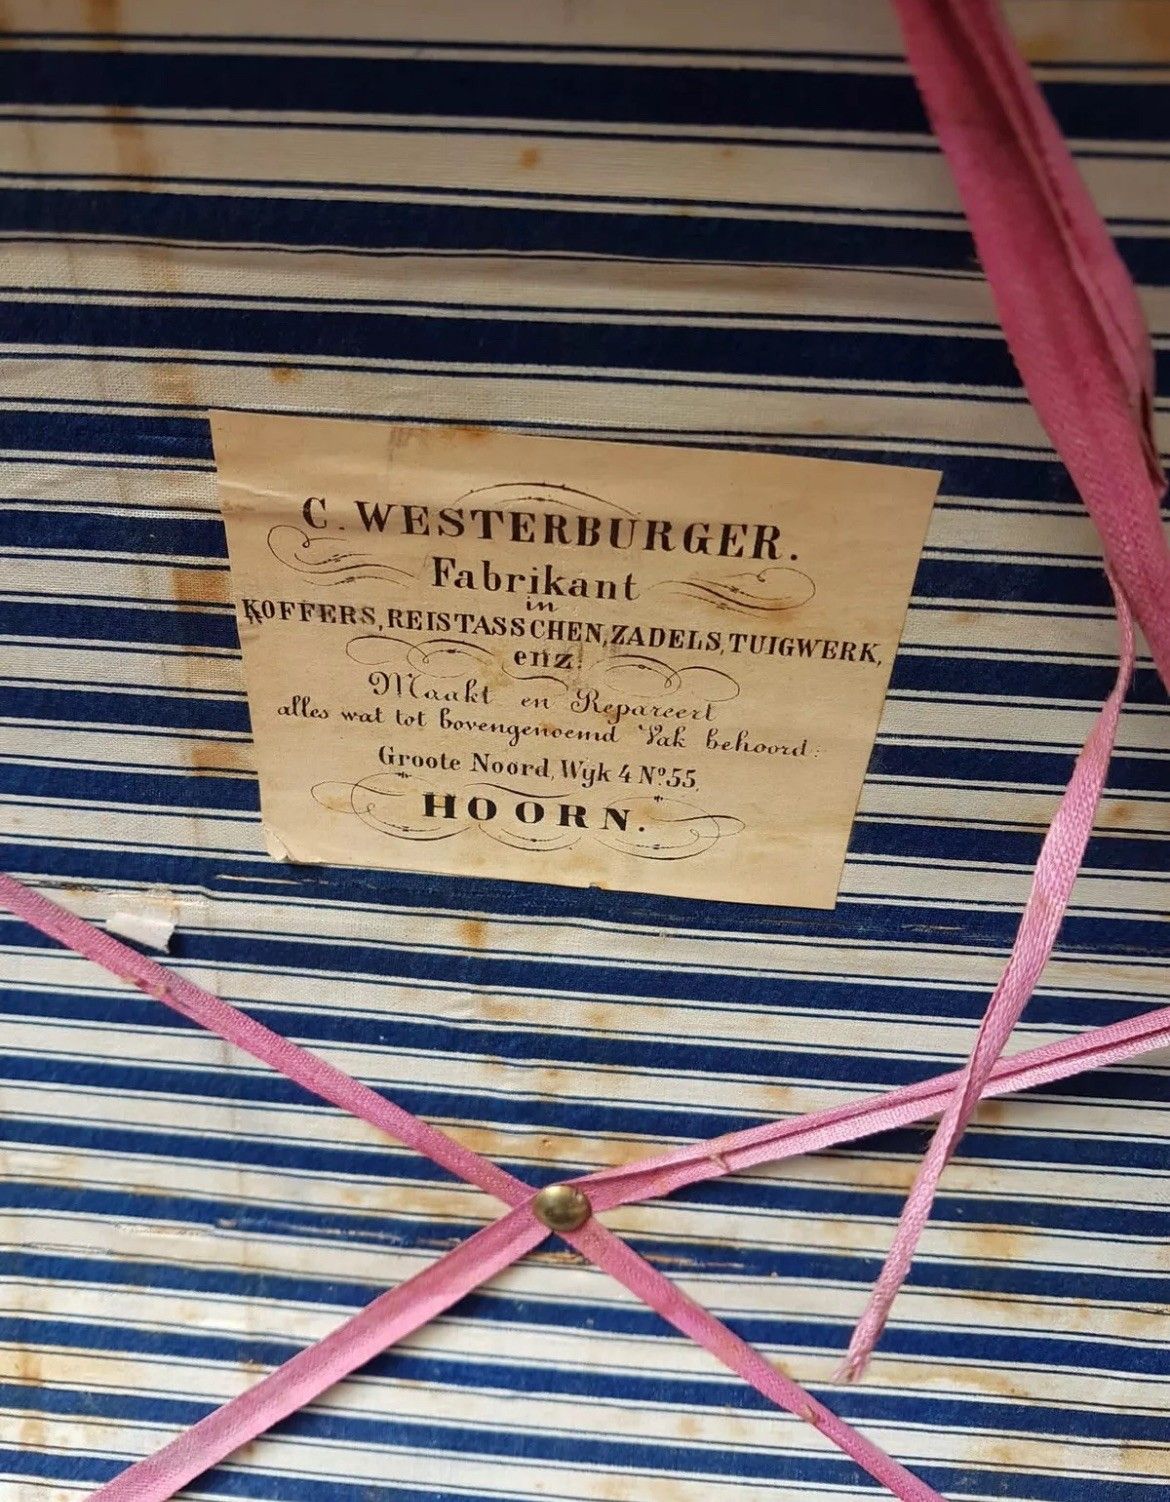 C. WESTERBURGER.
Fabrikant
in
KOFFERS, REISTASSCHEN, ZADELS, TUIGWERK,
enz:
Maakt en Repareert
alles wat tot bovengenoemd Vak behoord:
Groote Noord, Wyk 4 Nº 55,
HOORN.